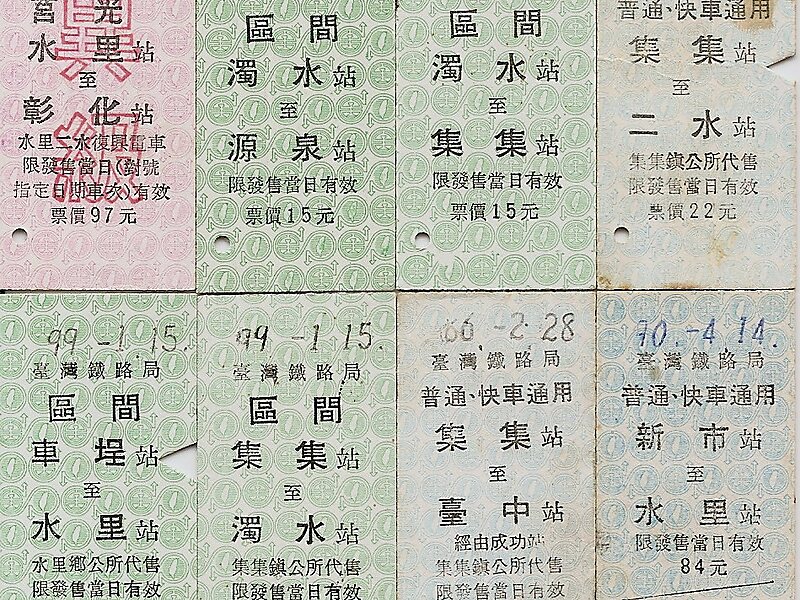 莒光
水里站
至
彰化站
水里一水復興電車
限發售當日(對號
指定日期車次)有效
票價97元
區間
濁水站
至
源泉站
限發售當日有效
票價15元
區間
濁水站
至
集集站
限發售當日有效
票價15元
普通、快車通用
集集站
至
二水站
集集鎮公所代售
限發售當日有效
票價22元
99 -1 15.
臺灣鐵路局
區間
車埕站
至
水里站
水里鄉公所代售
限發售當日有效
99 -1 15.
臺灣鐵路局
區間
集集站
至
濁水站
集集鎮公所代售
限發售當日有效
66 -2.28
臺灣鐵路局
普通、快車通用
集集站
至
臺中站
經由成功站
集集鎮公所代售
限發售當日有效
70.-4.14.
臺灣鐵路局
普通、快車通用
新市站
至
水里站
限發售當日有效
84元